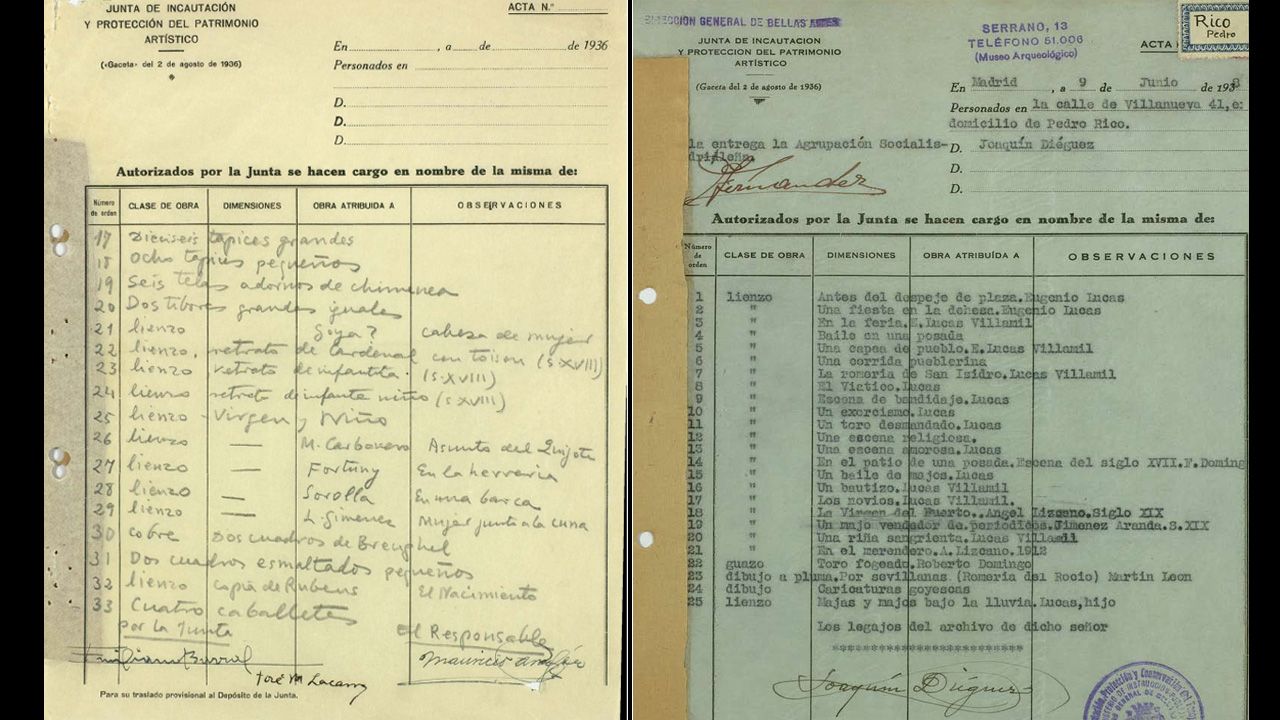 JUNTA DE INCAUTACIÓN
Y PROTECCIÓN DEL PATRIMONIO
ARTÍSTICO
(«Gaceta» del 2 de agosto de 1936)
ACTA N.º
En , a de de 1936
Personados en
D.
D.
D.
Autorizados por la Junta se hacen cargo en nombre de la misma de:
Número de orden CLASE DE OBRA DIMENSIONES OBRA ATRIBUIDA A OBSERVACIONES
17 Dieciseis tapices grandes
18 Ocho tapices pequeños
19 Seis telas adornos de chimenea
20 Dos tibores grandes iguales
21 lienzo Goya? cabeza de mujer
22 lienzo, retrato de Cardenal con toison (S.XVIII)
23 lienzo retrato de infantita. (S.XVIII)
24 lienzo retrato de infante niño (S.XVIII)
25 lienzo - Virgen y Niño
26 lienzo — M. Carbonero Asunto del Quijote
27 lienzo — Fortuny En la herreria
28 lienzo — Sorolla En una barca
29 lienzo — L. Gimenez Mujer junto a la cuna
30 cobre Dos cuadros de Breughel
31 Dos cuadros esmaltados pequeños
32 lienzo copia de Rubens El Nacimiento
33 Cuatro caballetes
por la Junta
El Responsable
Emiliano Barral
Mauricio
José M Lacarra
Para su traslado provisional al Depósito de la Junta.
DIRECCION GENERAL DE BELLAS ARTES
JUNTA DE INCAUTACION
Y PROTECCION DEL PATRIMONIO
ARTÍSTICO
(Gaceta del 2 de agosto de 1936)
SERRANO, 13
TELÉFONO 51.006
(Museo Arqueológico)
ACTA
Rico
Pedro
En Madrid , a 9 de Junio de 1938
Personados en la calle de Villanueva 41,e:
domicilio de Pedro Rico.
la entrega la Agrupación Socialis-
D. Joaquín Diéguez
drileña.
D.
D.
Hernandez
Autorizados por la Junta se hacen cargo en nombre de la misma de:
Número de orden CLASE DE OBRA DIMENSIONES OBRA ATRIBUÍDA A OBSERVACIONES
1 lienzo Antes del despeje de plaza.Eugenio Lucas
2 " Una fiesta en la dehesa.Eugenio Lucas
3 " En la feria.E.Lucas Villamil
4 " Baile en una posada
5 " Una capea de pueblo.E.Lucas Villamil
6 " Una corrida pueblerina
7 " La romeria de San Isidro.Lucas Villamil
8 " El Viatico.Lucas
9 " Escena de bandidaje.Lucas
10 " Un exorcismo.Lucas
11 " Un toro desmandado.Lucas
12 " Una escena religiosa.
13 " Una escena amorosa.Lucas
14 " En el patio de una posada.Escena del siglo XVII.F.Doming
15 " Un baile de majos.Lucas
16 " Un bautizo.Lucas Villamil
17 " Los novios.Lucas Villamil.
18 " La Virgen del Puerto..Angel Lizcano.Siglo XIX
19 " Un majo vendedor de periodicos.Jimenez Aranda.S.XIX
20 " Una riña sangrienta.Lucas Villamil
21 " En el merendero.A.Lizcano.1912
22 guazo Toro fogeado.Roberto Domingo
23 dibujo a pluma.Por sevillanas (Romeria del Rocio) Martin Leon
24 dibujo Caricaturas goyescas
25 lienzo Majas y majos bajo la lluvia.Lucas,hijo
Los legajos del archivo de dicho señor
*********************************
Joaquín Diéguez